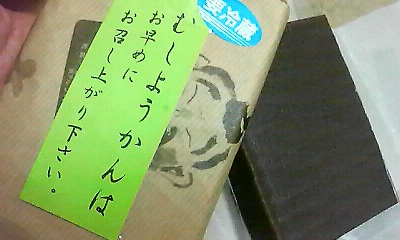 むしようかんは
お早めに
お召し上がり下さい。
要冷蔵